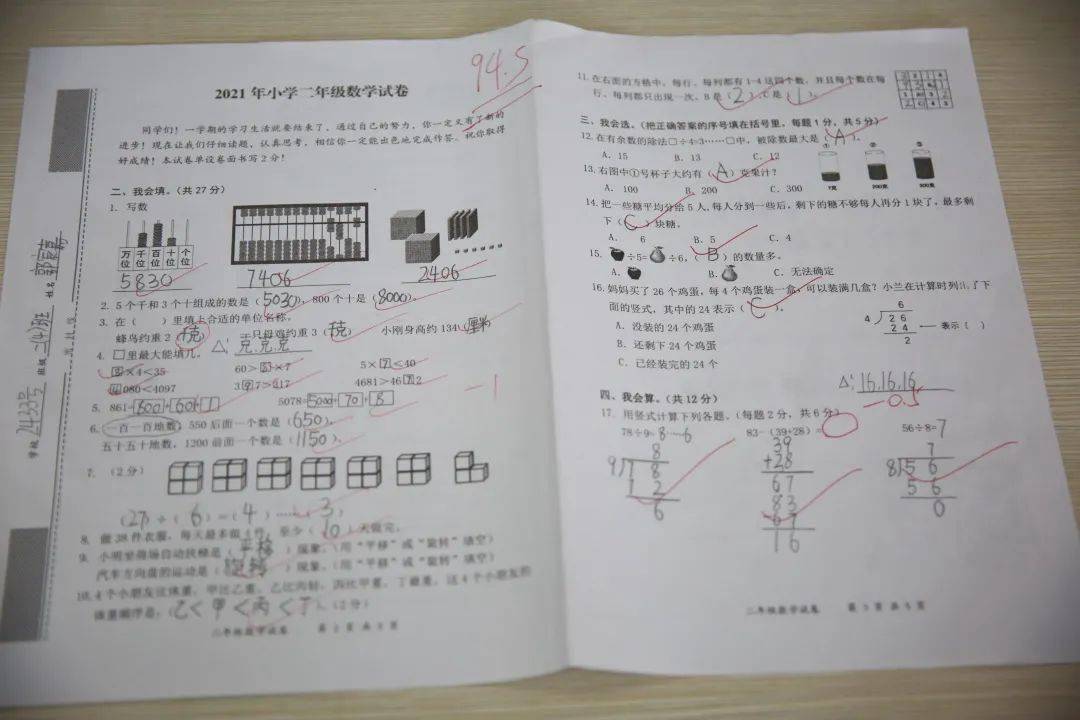 94.5
2021 年小学二年级数学试卷
同学们!一学期的学习生活就要结束了,通过自己的努力,你一定又有了新的
进步!现在让我们仔细读题,认真思考,相信你一定能出色地完成作答。祝你取得
好成绩!本试卷单设卷面书写2分!
二、我会填。(共 27 分)
1. 写数
万位 千位 百位 十位 个位
5830 7406 2406
2. 5 个千和 3 个十组成的数是(5030),800 个十是(8000)。
3. 在( )里填上合适的单位名称。
蜂鸟约重 2(克) 一只母鸡约重 3(千克) 小刚身高约 134(厘米)
△: 克.克.克
4. □里最大能填几。
8×4<35 60>8×7 5×7<40
080<4097 3 7>317 4681>46 2
-1
5. 861=800+60+1 5078=5000+70+8
6. 一百一百地数,550 后面一个数是(650),
五十五十地数,1200 前面一个数是(1150)。
7. (2 分)
(27)÷(6)=(4)……(3)
8. 做 38 件衣服,每天最多做 4 件,至少(10)天做完。
9. 小明坐商场自动扶梯是(平移)现象。(用“平移”或“旋转”填空)
汽车方向盘的运动是(旋转)现象。(用“平移”或“旋转”填空)
10. 4 个小朋友比体重,甲比乙重,乙比丙轻,丙比甲重,丁最重,这 4 个小朋友的
体重顺序是:(乙<甲<丙<丁)。(2分)
二年级数学试卷 第 2 页 共 5 页
学校 班级 二(4)班 姓名
11. 在右面的方格中,每行、每列都有 1-4 这四个数,并且每个数在每
行、每列都只出现一次。B 是(2),C 是(1)。
三、我会选。(把正确答案的序号填在括号里,每题 1 分,共 5 分)
12. 在有余数的除法□÷4=3……□中,被除数最大是(A)。
A. 15 B. 13 C. 12
13. 右图中①号杯子大约有(A)克果汁?
A. 100 B. 200 C. 300
① ② ③
?克 200克 300克
14. 把一些糖平均分给 5 人,每人分到一些后,剩下的糖不够每人再分 1 块了,最多剩
下(C)块糖。
A. 6 B. 5 C. 4
15. ÷5= ÷6,(B)的数量多。
A. B. C. 无法确定
16. 妈妈买了 26 个鸡蛋,每 4 个鸡蛋装一盒,可以装满几盒?小兰在计算时列出了下
面的竖式,其中的 24 表示(C)。
A. 没装的 24 个鸡蛋
B. 还剩下 24 个鸡蛋
C. 已经装完的 24 个
6
4 26
24 表示( )
2
△: 16.16.16
-0.5
四、我会算。(共 12 分)
17. 用竖式计算下列各题。(每题 2 分,共 6 分)
78÷9=8……6 83-(39+28)= 56÷8=7
8 39 7
9 78 +28 8 56
72 67 56
6 83 0
-67
16
二年级数学试卷 第 3 页 共 5 页